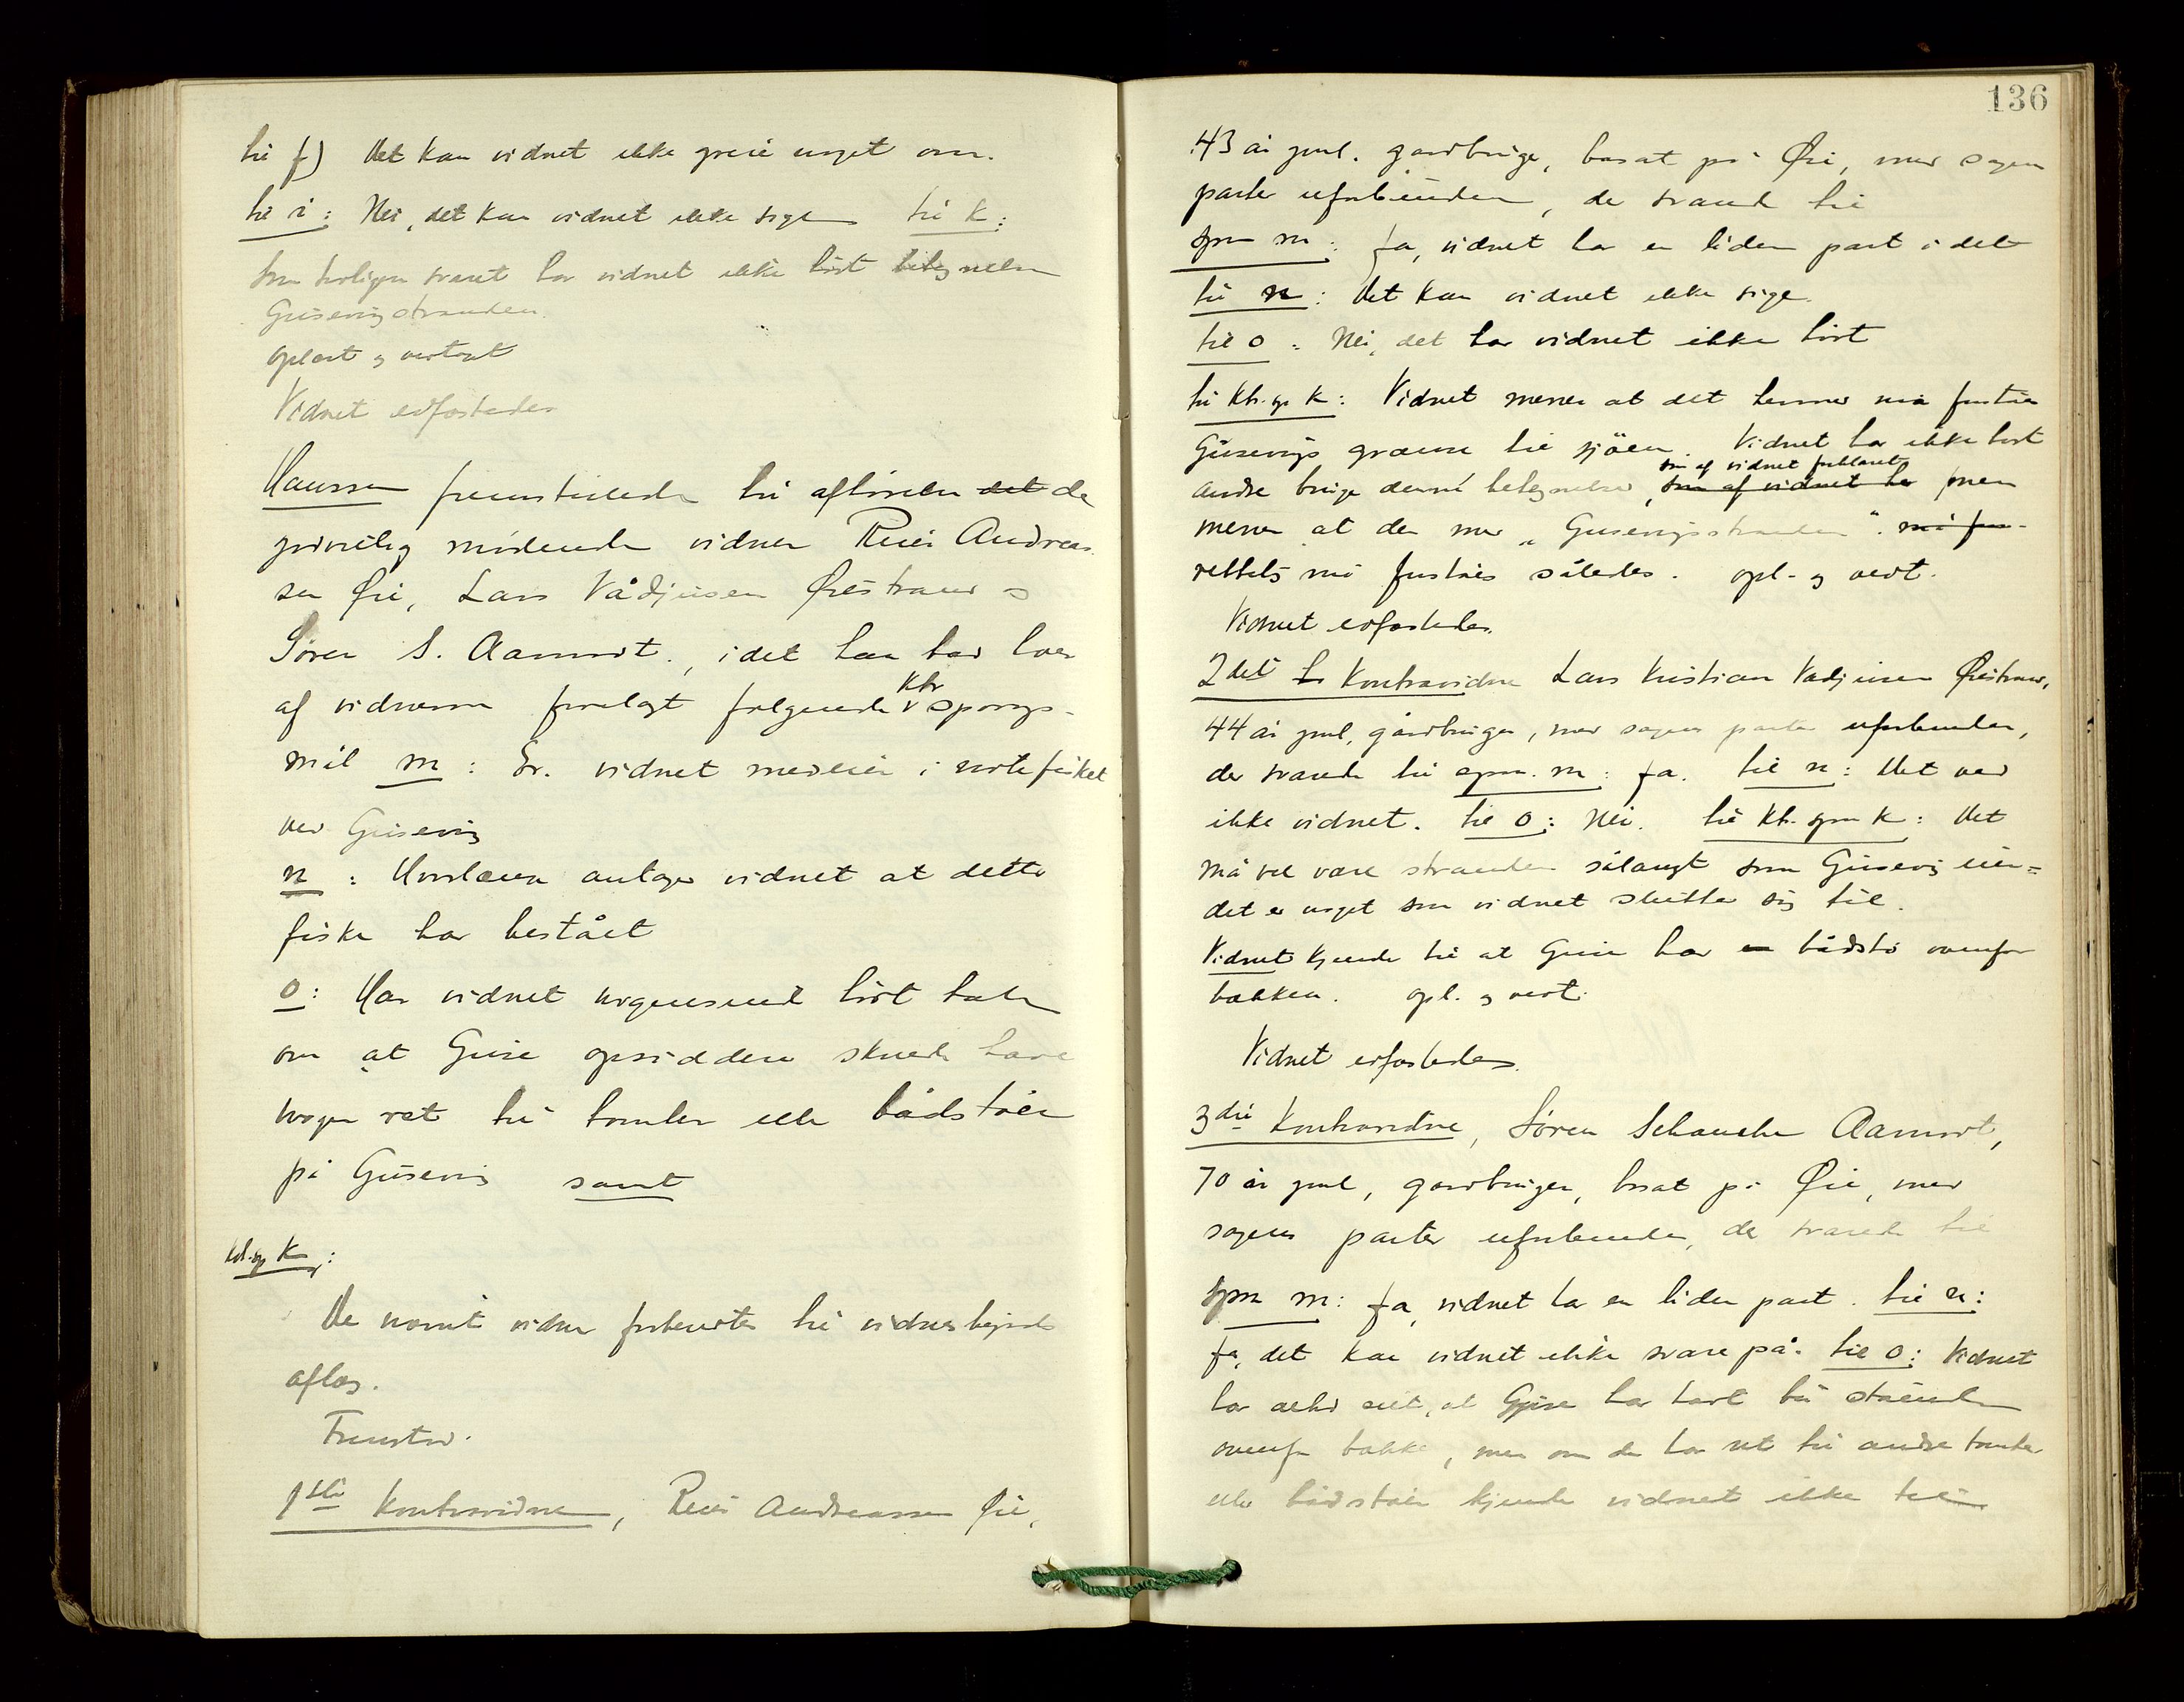 til f) Det kan vidnet ikke greie noget om.
til i: Nei, det kan vidnet ikke sige til k:
Som tidligere svaret har vidnet ikke hört betegnelsen
Gusevigstranden.
Oplæst og vedtat
Vidnet edfæstedes
Hanssen fremstillede til afhörelse det de
godvillig mödende vidner Reier Andreas
sen Øie, Lars Vådjusen Øiestrand og
Sören S. Aamodt., idet han bad hver
af vidnerne forelagt følgende ktr spörgs-
mål m: Er vidnet medeier i notefisket
ved Gusevig
n: Hvorlænge antager vidnet at dette
fiske har bestået
o: Har vidnet nogensinde hört tale
om at Guse opsiddere skulde have
nogen ret til tomter eller bådstöer
på Gusevig samt
ktr.sp k:
De nævnte vidner forberedtes til vidnesbyrds
aflæg.
Fremstod.
1ste kontravidne, Reier Andreassen Øie,
136
43 år gml. gårdbruger, bosat på Øie, med sagens
parter uforbunden, der svarede til
spm m: Ja, vidnet har en liden part i det
til n: Det kan vidnet ikke sige.
til o: Nei, det har vidnet ikke hört
til ktr.sp k: Vidnet mener at det hermed må forståes
Gusevigs grænse til sjöen. Vidnet har ikke hört
som af vidnet forklaret
andre bruge denne betegnelse, som af vidnet her men
mener at der med "Gusevigsstranden". må for-
rettelig må forståes således. opl. og vedt.
Vidnet edfæstedes.
2det L kontravidne Lars Kristian Vadjusen Øiestrand,
44 år gml, gårdbruger, med sagens parter uforbunden,
der svarede til spm. m: Ja. til n: Det ved
ikke vidnet. til o: Nei. til ktr. spm k: Det
må vel være stranden sålangt som Gusevig eier=
det er noget som vidnet slutter sig til.
Vidnet kjender til at Guse har en bådstö ovenfor
bakken. opl. og vedt.
Vidnet edfæstedes.
3die kontravidne, Sören Schanche Aamodt,
70 år gml, gårdbruger, bosat på Øie, med
sagens parter uforbunden, der svarede til
Spm m: Ja, vidnet har en liden part. til n:
Ja, det kan vidnet ikke svare på. til o: Vidnet
har altid vidst, at Guse har havt
ovenfor bakke, men om de har ret til andre tomter
eller bådstöer kjender vidnet ikke til